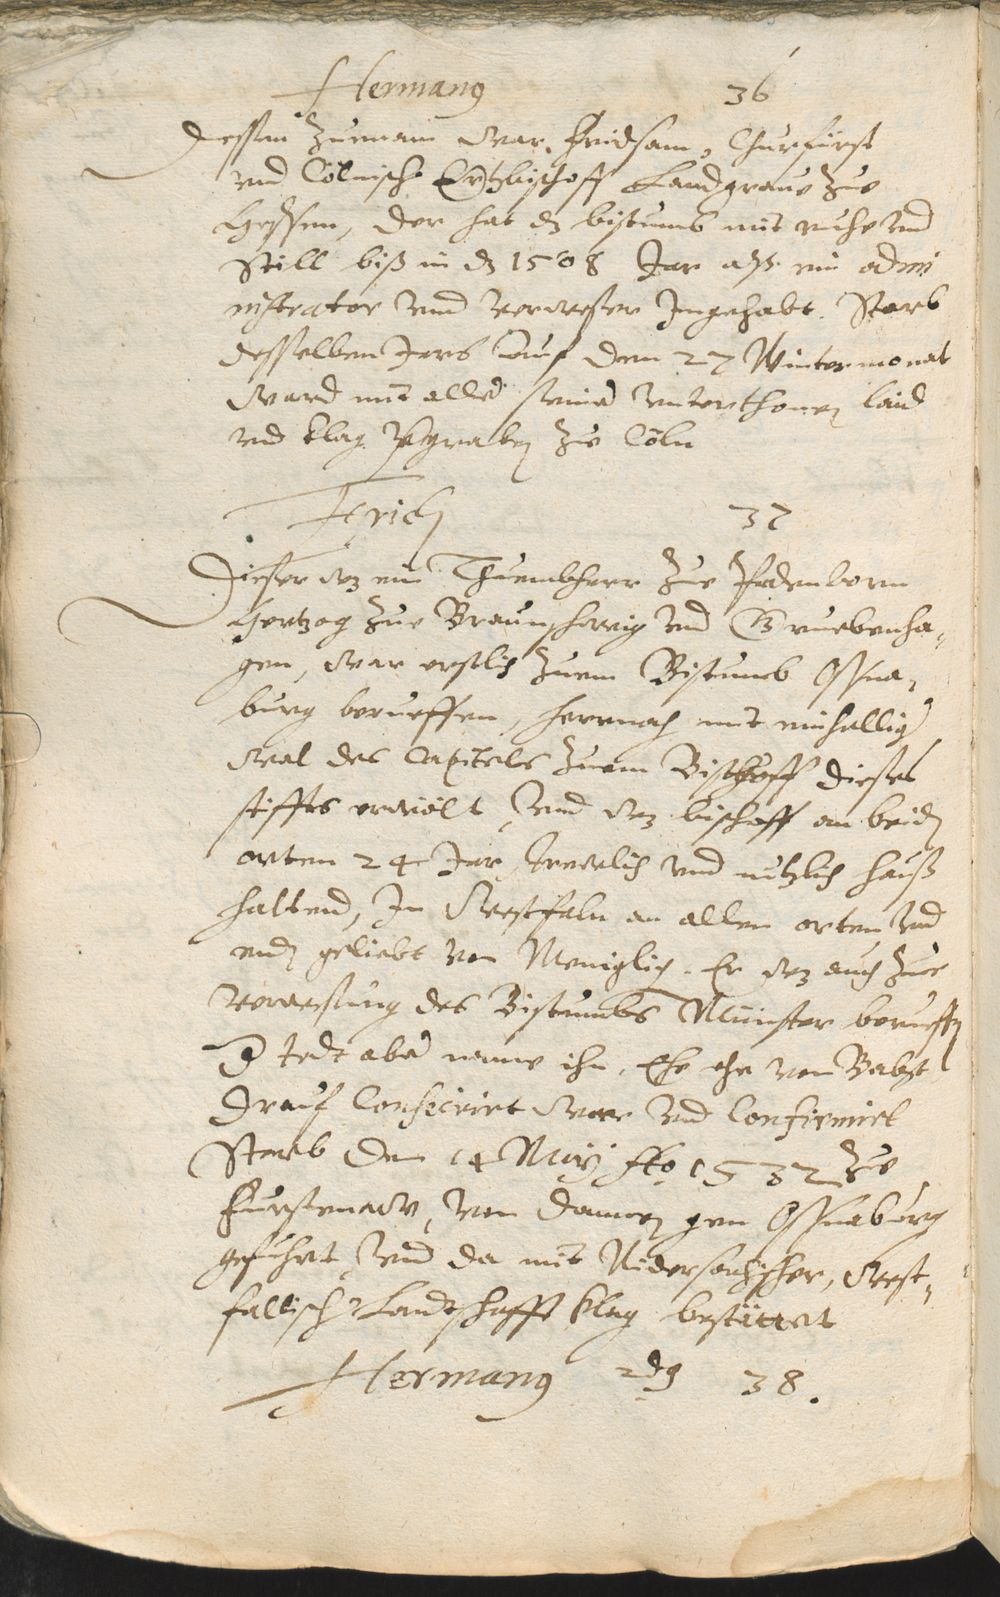 Hermang 36
Dessen Zuenam War. Fridsam, Churfürst
vnd Cölnische Ertzbischoff Landgraue Zue
Hessen, der hat dz bistumb mit ruhe vnd
Still biß in dz 1508 Jar alß ein admi
nistrator vnd verweser Ingehabt. Starb
desselben Jars auf den 27 Wintermonat
Ward mit aller seiner vnterthonen laid
vnd klag Vergraben Zue Cöln
Erich 37
Dieser Wz ein Thuembherr Zue Padenborn
Hertzog Zue Braunschweig vnd Gruebenha,
gen, War erstlich Zuem Bistumb Osna,
burg berueffen, hernach mit einhellig
Wal des Capitels Zuem Bischoff dieses
stiffts erwölt, vnd Wz bischoff an beiden
orten 24 Jar, trewlich vnd nutzlich hauß
haltend, In Westfaln an allen orten vnd
enden geliebt von Meniglich. Er Wz auch Zue
Verwesung des Bistumbs Münster berueffen
D Todt aber name ihn, Ehe ehr vom Babst
drauf Consecrirt War vnd Confirmirt
Starb den 14 May Ao 1532 Zue
Furstenaw, von dannen gen Osnaburg
gefuhrt, vnd da mit Nidersachischer, West,
fallischer Landschafft klag bestättet
Hermang 2dg 38.